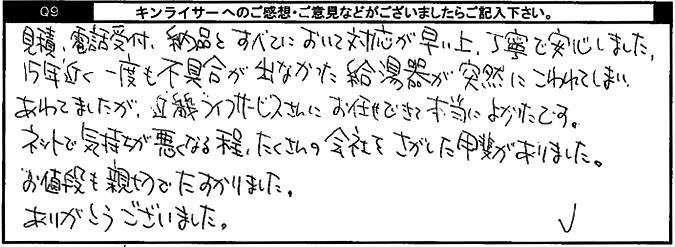 Q9 キンライサーへのご感想・ご意見などがございましたらご記入下さい。
見積、電話受付、納品とすべてにおいて対応が早い上、丁寧で安心しました。
15年近く一度も不具合が出なかた給湯器が突然にこわれてしまい
あわてましたが、近畿ライフサービスさんにお任せできて本当によかたです。
ネットで気持ちが悪くなる程、たくさんの会社をさがした甲斐がありました。
お値段も親切でたすかりました。
ありがとうございました。